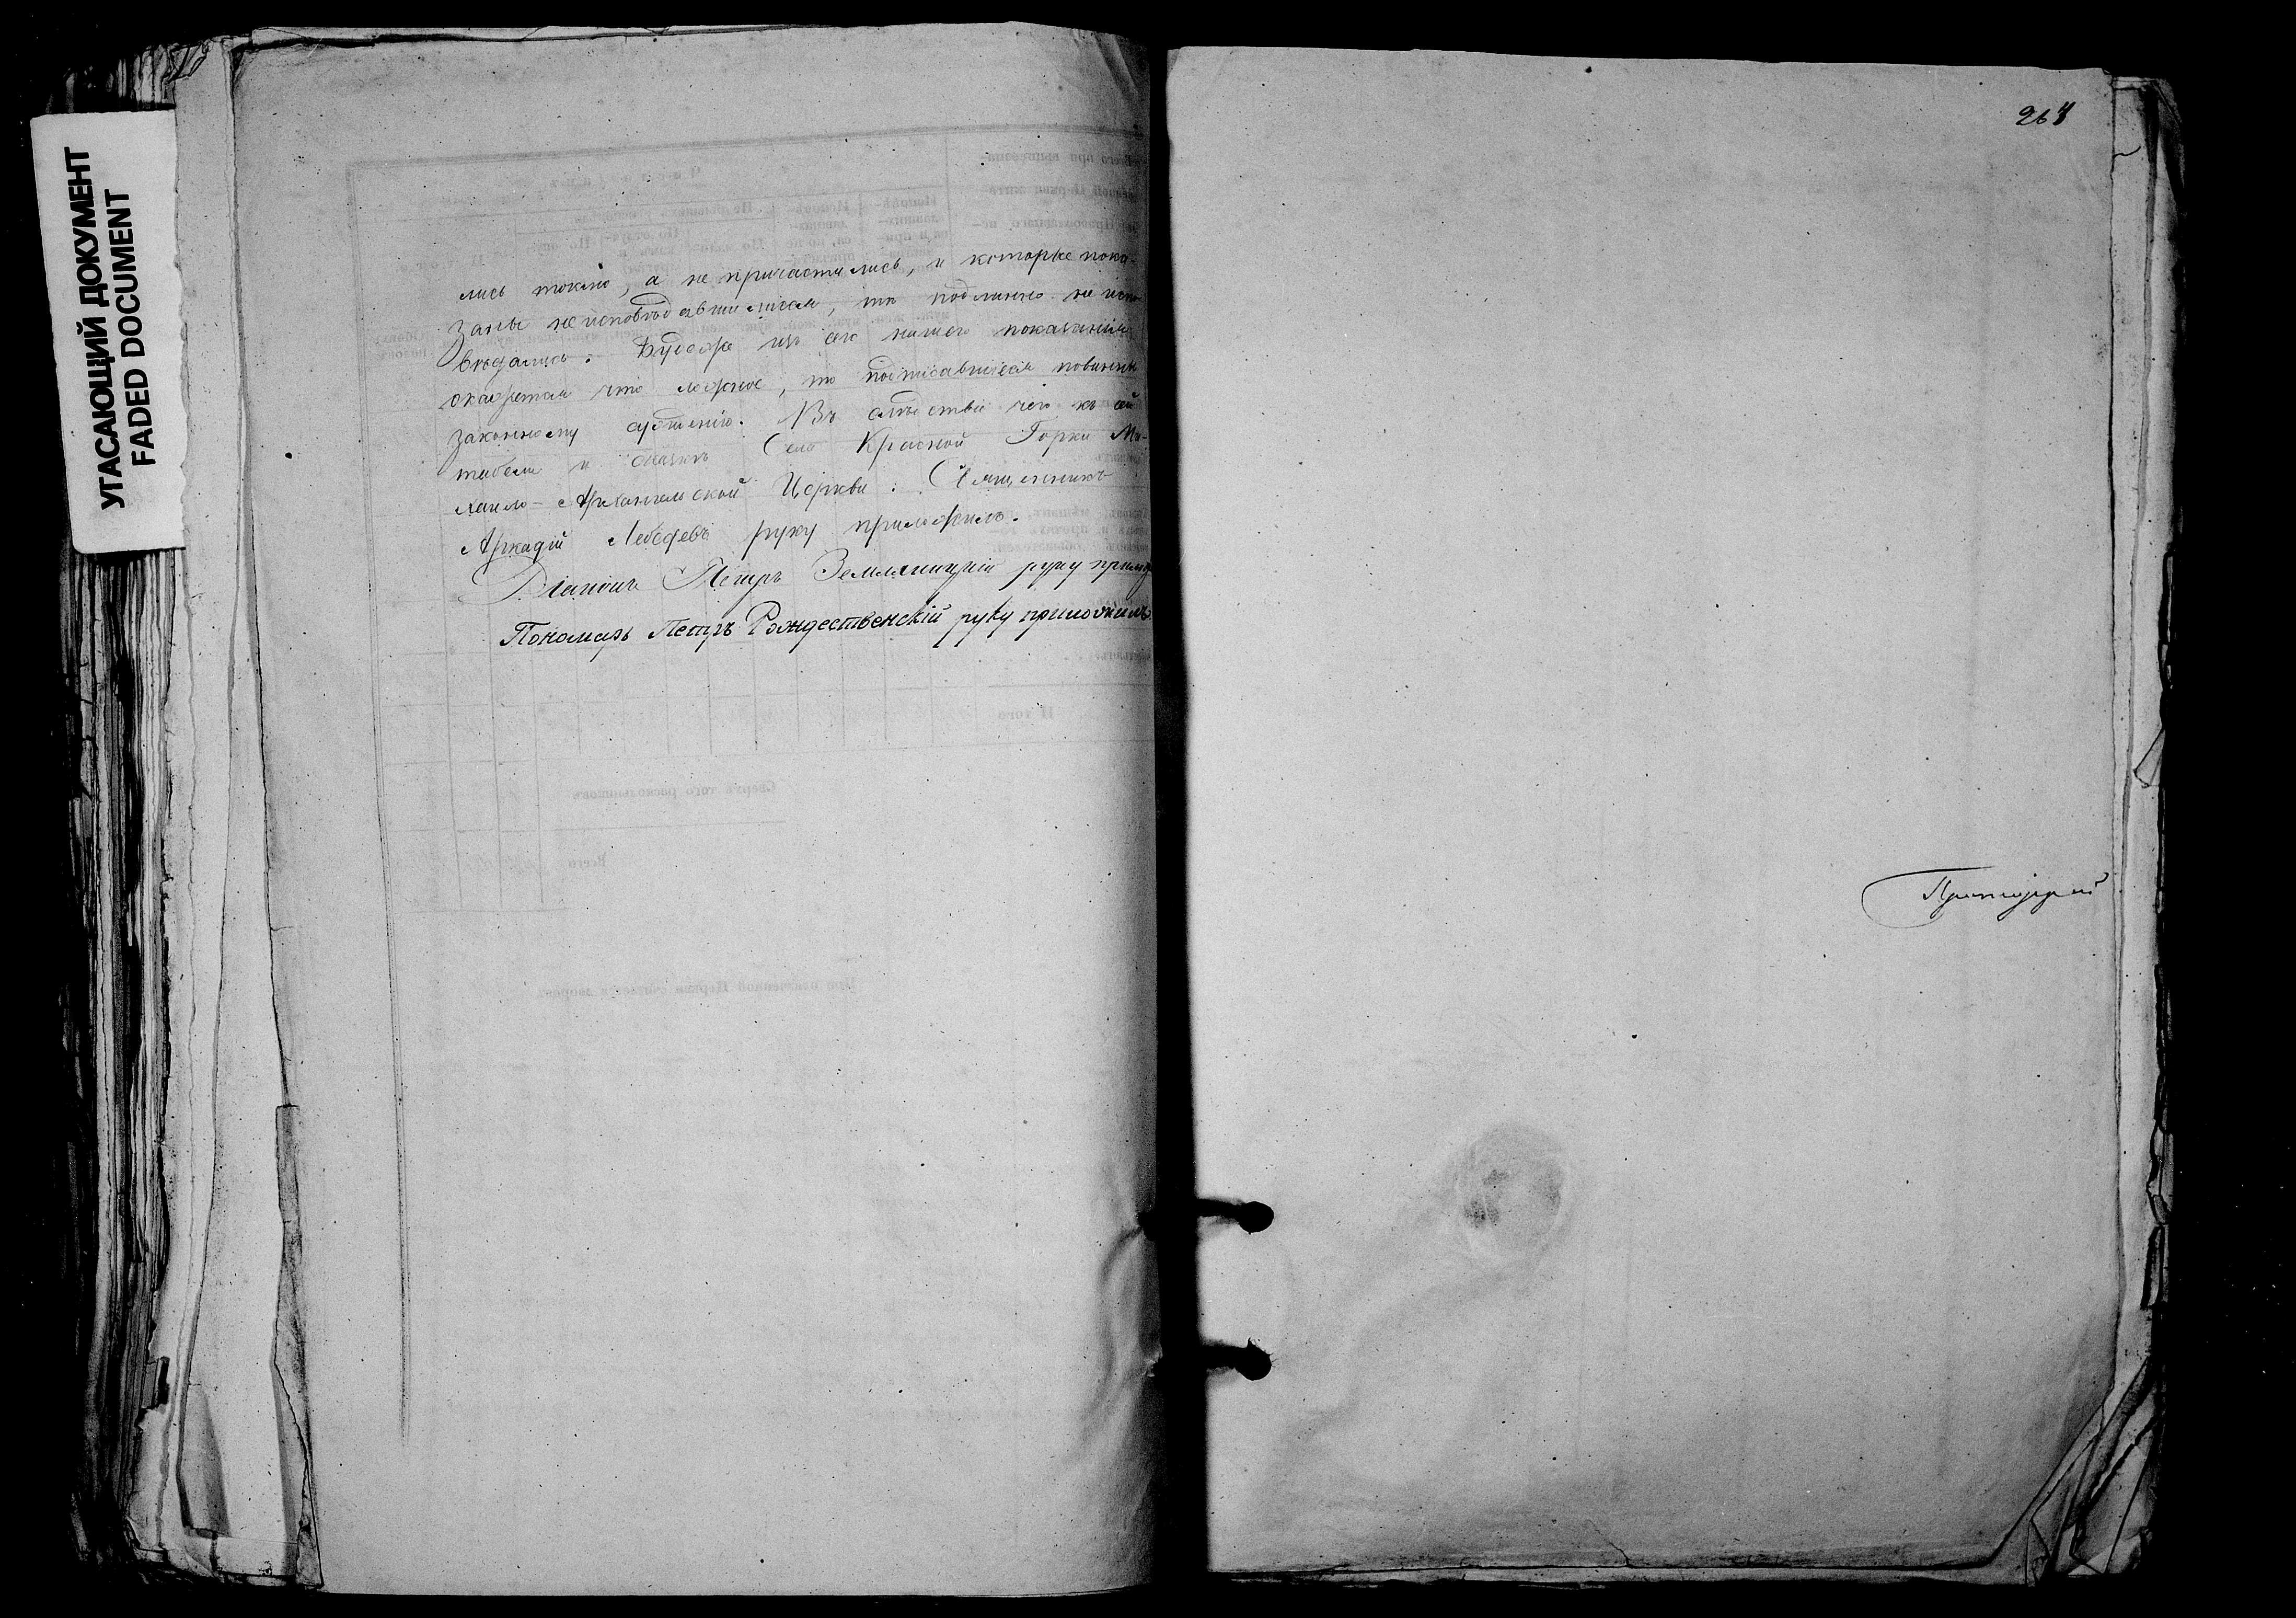 УГАСАЮЩИЙ ДОКУМЕНТ
FADED DOCUMENT
лись токмо, а не причастились, и которые пока-
заны не исповѣдавшимися, тѣ подлинно не испо-
вѣдались. Будеже изъ сего нашего показанія
окажется что ложное, то подписавшіеся повинны
законному сужденію. Въ слѣдствіе чего къ сей
табели и Села Красной Горки Ми-
хаило-Архангельской Церкви: Священникъ
Аркадій Лебедевъ руку приложилъ.
Діаконъ Петръ Земляницкій руку прилож
Пономарь Петръ Рождественскій руку приложилъ.
И того
Сверхъ того раскольниковъ
Всего
Протоіерей